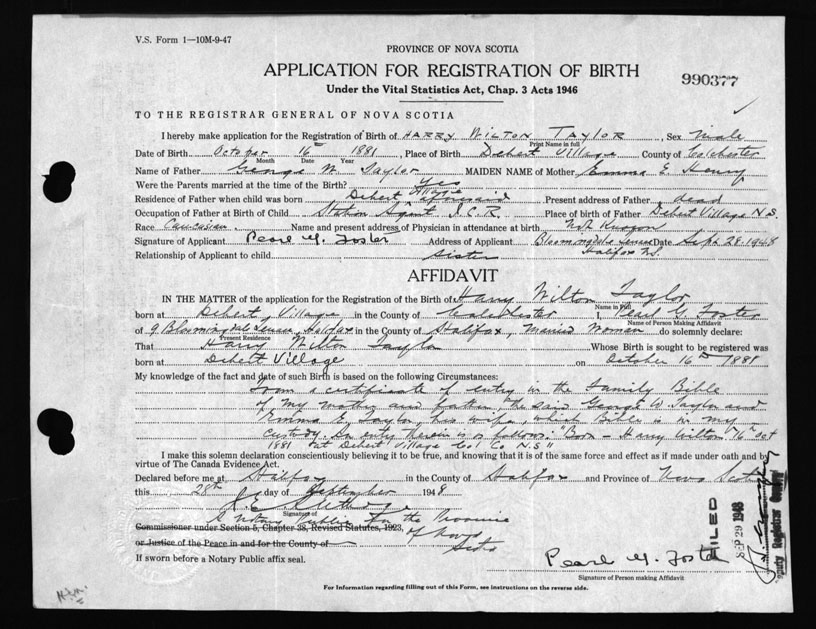 V.S. Form 1—10M-9-47
PROVINCE OF NOVA SCOTIA
APPLICATION FOR REGISTRATION OF BIRTH
990377
Under the Vital Statistics Act, Chap. 3 Acts 1946
TO THE REGISTRAR GENERAL OF NOVA SCOTIA
I hereby make application for the Registration of Birth of HARRY WILTON TAYLOR, Sex Male
Print Name in full
Date of Birth October 16th 1881, Place of Birth Debert Village County of Colchester
Month Date Year
Name of Father George W. Taylor MAIDEN NAME of Mother Emma E Henry
Were the Parents married at the time of the Birth? Yes
Residence of Father when child was born Debert Village aforesaid Present address of Father dead
Occupation of Father at Birth of Child Station Agent I.C.R. Place of birth of Father Debert Village N.S.
Race Caucasian. Name and present address of Physician in attendance at birth Not Known
Signature of Applicant Pearl G. Foster Address of Applicant Bloomingdale Terrace Date Sept. 28. 1948
Relationship of Applicant to child Sister Halifax N.S.
AFFIDAVIT
IN THE MATTER of the application for the Registration of the Birth of Harry Wilton Taylor
Name in Full
born at Debert Village in the County of Colchester I, Pearl G. Foster
Name of Person Making Affidavit
of 9 Bloomingdale Terrace, Halifax in the County of Halifax, Married Woman do solemnly declare:
Present Residence
That Harry Wilton Taylor Whose Birth is sought to be registered was
born at Debert Village on October 16th 1881
My knowledge of the fact and date of such Birth is based on the following Circumstances:
From a certificate of entry in the Family Bible
of my mother and father, the said George W. Taylor and
Emma E. Taylor, his wife, which Bible is in my
custody. An entry therein is as follows: "Born - Harry Wilton 16th Oct
1881 at Debert Village Col. Co N.S."
I make this solemn declaration conscientiously believing it to be true, and knowing that it is of the same force and effect as if made under oath and by
virtue of The Canada Evidence Act.
Declared before me at Halifax in the County of Halifax and Province of Nova Scotia
this 28th day of September 1948
Signature of
A Notary Public for the Province
Commissioner under Section 5, Chapter 38, Revised Statutes, 1923, of Nova
or Justice of the Peace in and for the County of Scotia
If sworn before a Notary Public affix seal.
FILED
SEP 29 1948
Deputy Registrar General
Pearl G. Foster
Signature of Person making Affidavit
For Information regarding filling out of this Form, see instructions on the reverse side.